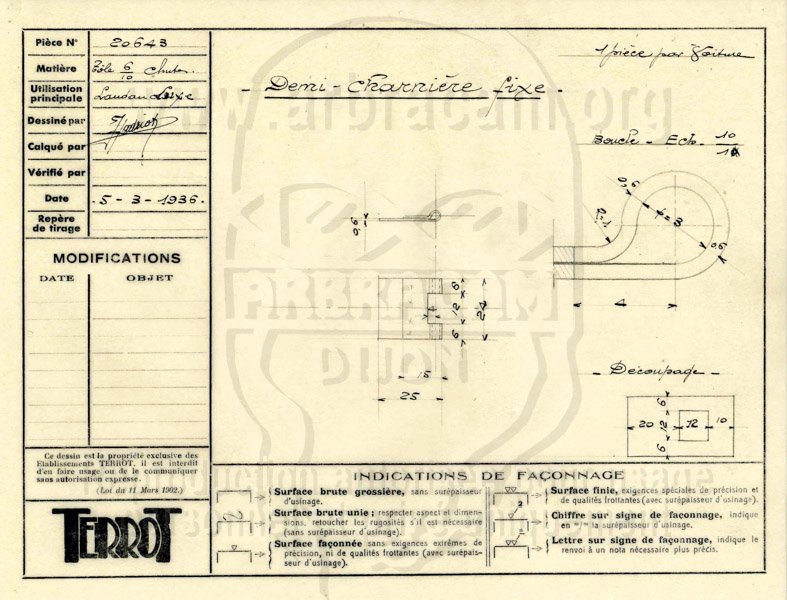 Pièce N° 20643
Matière Tôle 6/10
Utilisation principale Landau Luxe
Dessiné par
Calqué par
Vérifié par
Date 5-3-1936.
Repère de tirage
MODIFICATIONS
DATE OBJET
Ce dessin est la propriété exclusive des
Etablissements TERROT, il est interdit
d'en faire usage ou de le communiquer
sans autorisation expresse.
(Loi du 11 Mars 1902.)
TERROT
1 pièce par Voiture
- Demi-charnière fixe -
www.arbracam.org
Boucle - Ech. 10/1
0,6
R=1
φ=3
0,6
4
0,6
6
12
6
24
15
25
- Découpage -
6
20 12 12 10
6
ARBRACAM
DIJON
INDICATIONS DE FAÇONNAGE
Surface brute grossière, sans surépaisseur
d'usinage.
Surface brute unie ; respecter aspect et dimen-
sions, retoucher les rugosités s'il est nécessaire
(sans surépaisseur d'usinage).
Surface façonnée sans exigences extrêmes de
précision, ni de qualités frottantes (avec surépais-
seur d'usinage).
Surface finie, exigences spéciales de précision et
de qualités frottantes (avec surépaisseur d'usinage).
Chiffre sur signe de façonnage, indique
en m/m la surépaisseur d'usinage.
Lettre sur signe de façonnage, indique le
renvoi à un nota nécessaire plus précis.